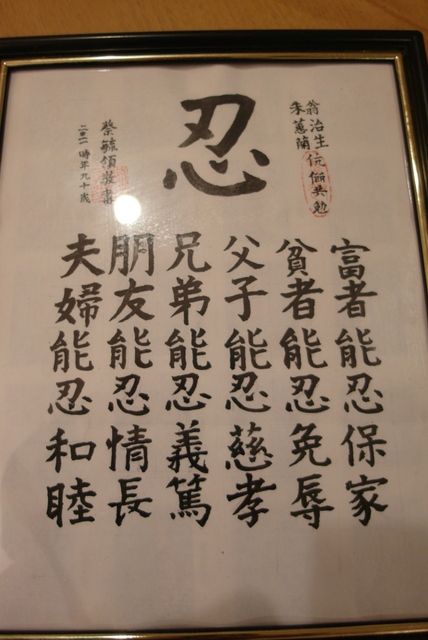 忍
翁治生
朱蕙蘭
伉儷共勉
富者能忍保家
貧者能忍免辱
父子能忍慈孝
兄弟能忍義篤
朋友能忍情長
夫婦能忍和睦
蔡毓領敬書
時年九十歲